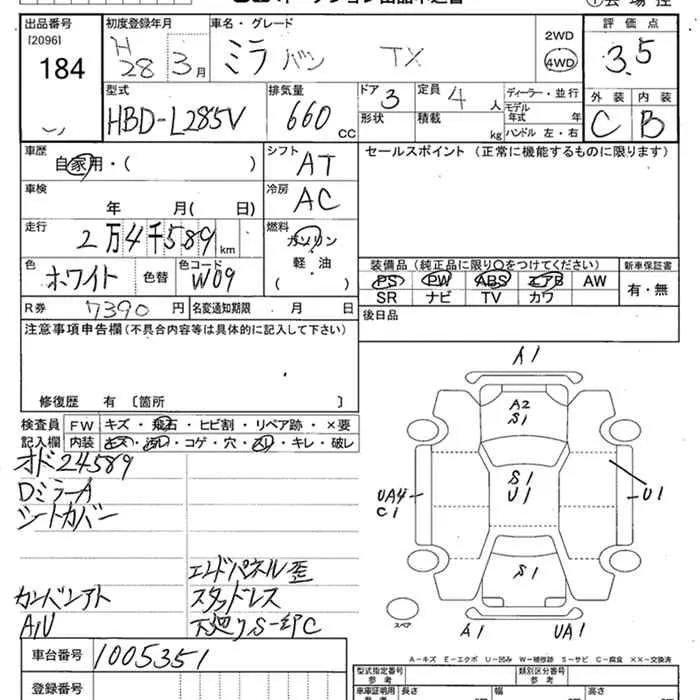 出品番号
[2096]
184
初度登録年月
H
28 3月
車名・グレード
ミラ バン TX
2WD
4WD
評価点
3.5
外装 内装
C B
型式
HBD-L285V
排気量
660 CC
ドア 3
形状
定員 4人
積載 kg
ディーラー・並行
モデル年式 年
ハンドル 左・右
車歴
自家用・( )
シフト
AT
セールスポイント (正常に機能するものに限ります)
車検
年 月( 日)
冷房
AC
走行
2万4千589km
燃料
ガソリン
軽・油
( )
色
ホワイト
色替
色コード
W09
装備品(純正品に限り○をつけてください)
新車保証書
PS PW ABS エアB AW
有・無
SR ナビ TV カワ
R券 7390円
名変通知期限 月 日
後日品
注意事項申告欄(不具合内容等は具体的に記入して下さい)
修復歴 有 〔箇所 〕
検査員
記入欄
FW キズ・飛石・ヒビ割・リペア跡・×要
内装 キズ・汚レ・コゲ・穴・スレ・キレ・破レ
オド24589
Dミラー A
シートカバー
エンドパネル歪
カンバンアト
スタッドレス
A1U
下廻りS-印C
車台番号 1005351
登録番号
A1
A2
S1
S1
U1
UA4
C1
U1
S1
スペア
A1
UA1
A-キズ E-エクボ U-凹み W-補修跡 S-サビ C-腐食 ××-交換済
型式指定番号
参考
類別区分番号
参考
車庫証明用
長さ
幅
高さ